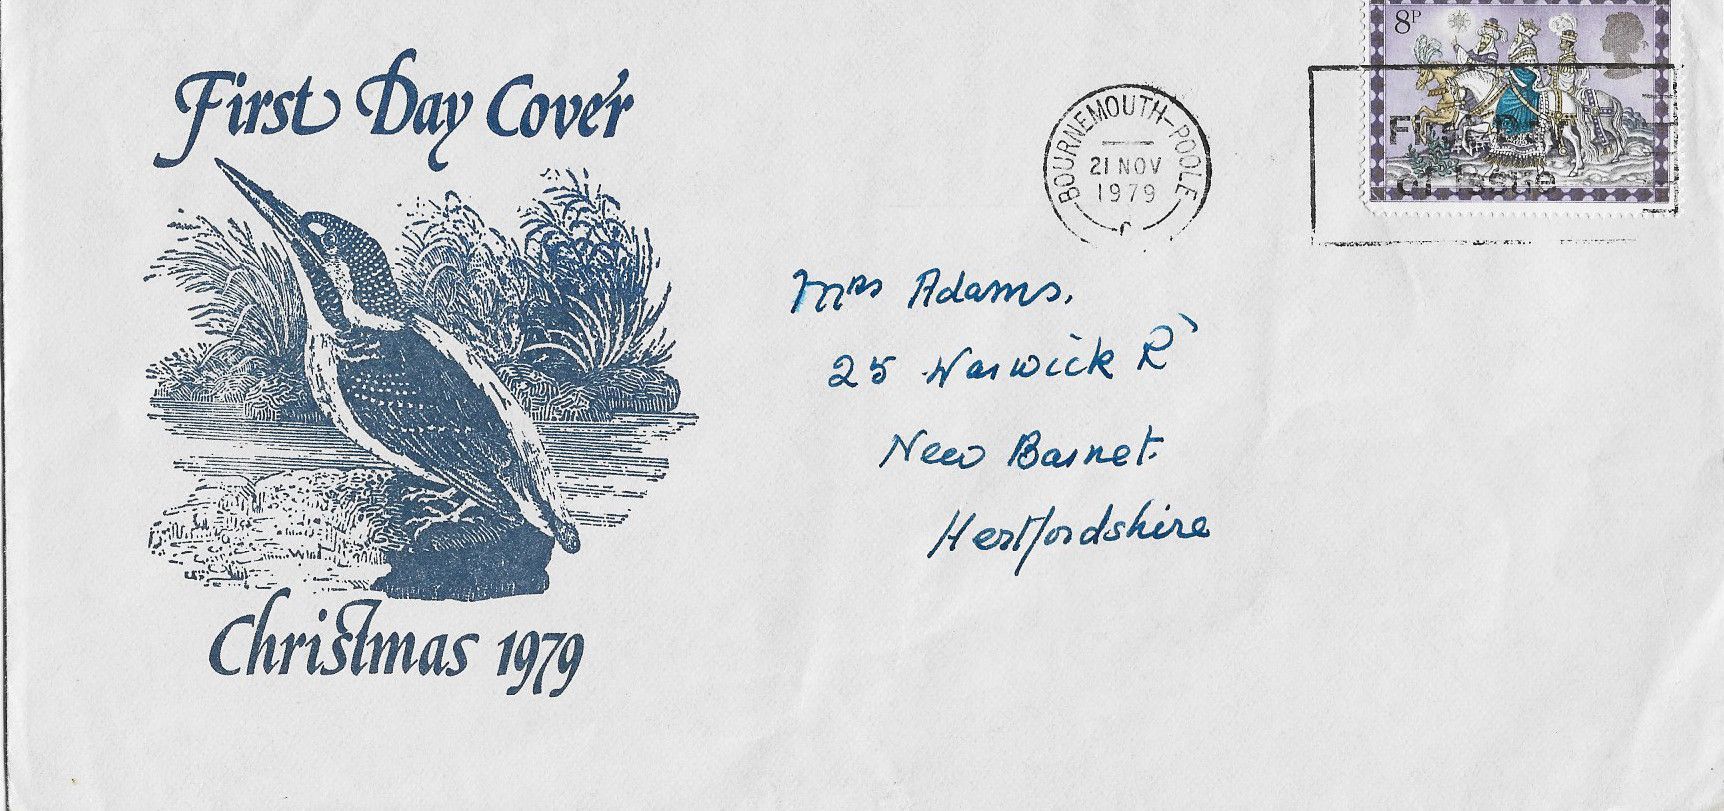 First Day Cover
8P
BOURNEMOUTH-POOLE
21 NOV
1979
C
First Day
of Issue
Mrs Adams,
25 Warwick Rd
New Barnet.
Hertfordshire
Christmas 1979